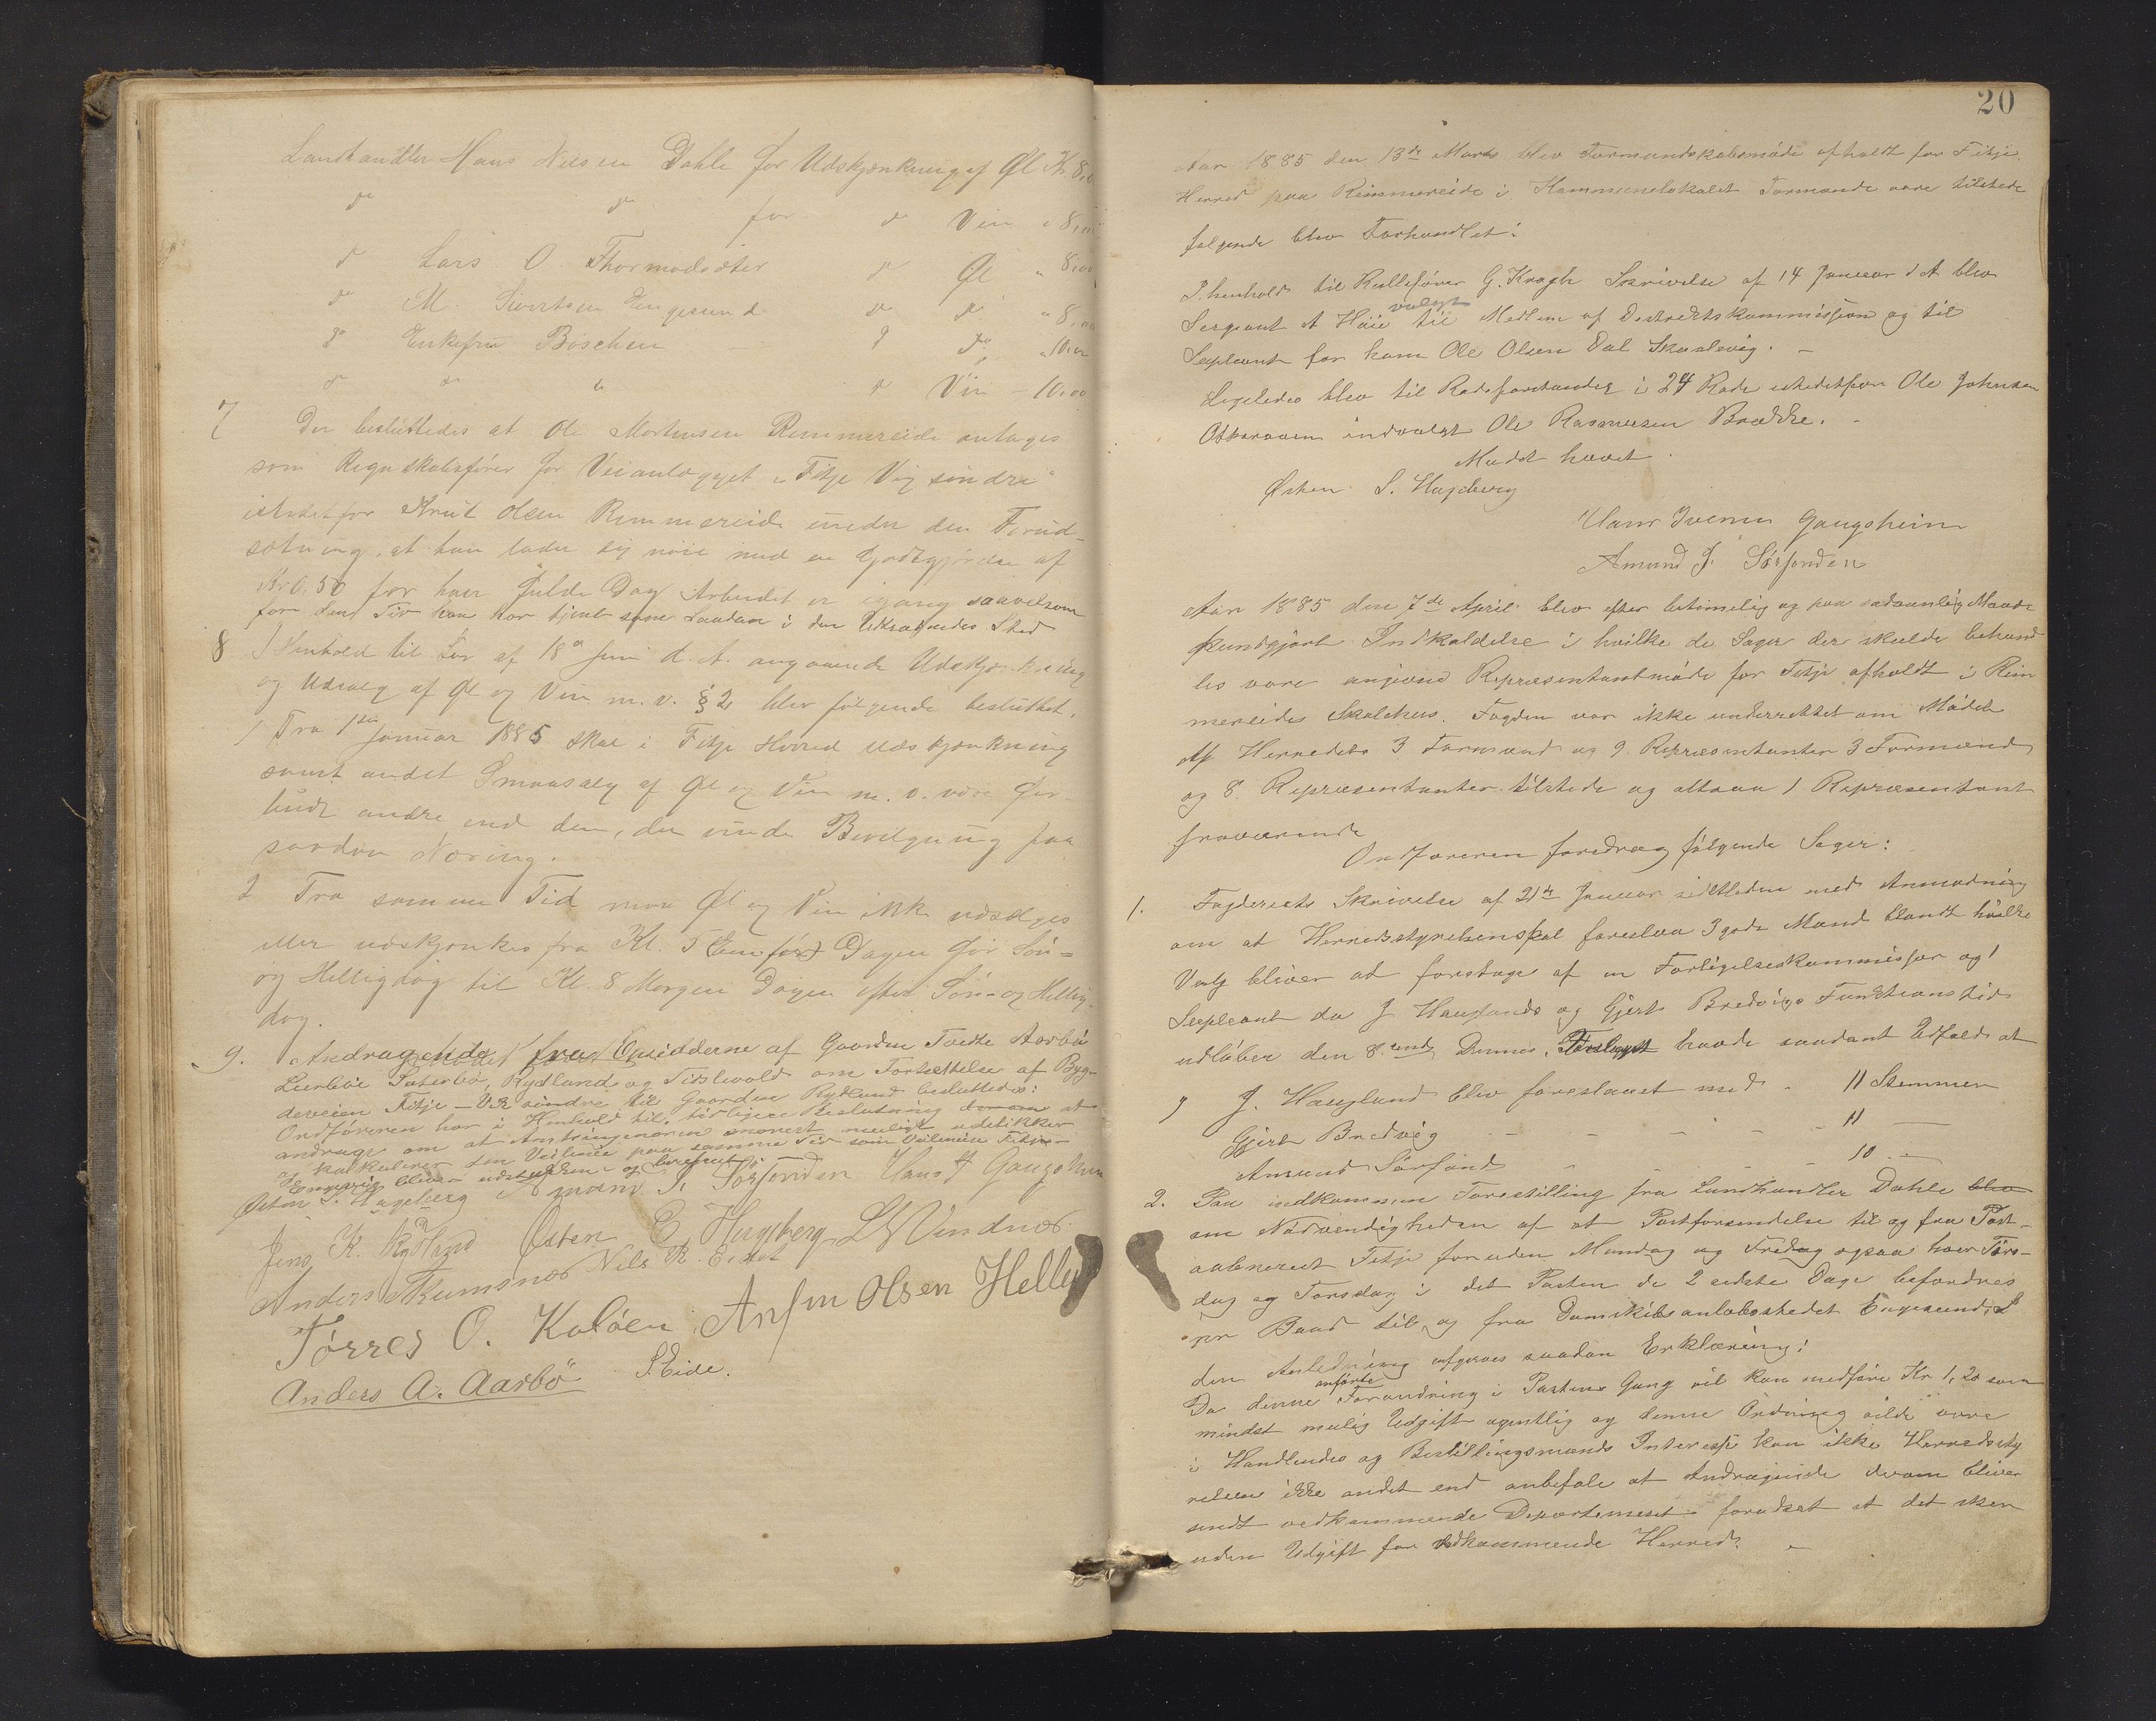 Landhandler Hans Nilsen Dahle for Udskjænkning af Øl Kr. 8,0
do do for do Vin " 8,00
do Lars O. Thormodsæter do Øl " 8,00
do M. Sivertsen Engesund do do " 8,00
do Enkefru Böschen do do " 10,00
do do " do Vin - 10,00
7 Der besluttedes at Ole Mortensen Rimmereide antages
som Regnskabsfører for Veianlægget "Fitje Vig søndre"
istedetfor Knut Olsen Rimmereide under den Forud-
sætning, at han lader sig nøie med en Godtgjørelse af
Kr 0,50 for hver fulde Dag Arbeidet er igang saavelsom
for den Tid han har tjent som Saadan i den Udtraadtes Sted
8 I Henhold til Lov af 18de Juni d. A. angaaende Udskjænkning
og Udsalg af Øl og Vin m.v. § 2 blev følgende besluttet,
1 Fra 1ste Januar 1885 skal i Fitje Herred Udskjænkning
samt andet Smaasalg af Øl og Vin m. v. være For-
budt andre end dem, der vinde Bevilgning paa
saadan Næring.
2 Fra samme Tid maa Øl og Vin ikke udsælges
eller udskjænkes fra Kl. 5 Em før Dagen før Søn=
og Helligdag til Kl. 8 Morgen Dagen efter Søn- og Hellig-
dag.
9. Andragende fra Opsidderne af Gaardene Tveite Aarbø
Leirbøe Sæterbø, Rydland og Tislevold om Fortsættelse af Byg-
deveien Fitje - Vik søndre til Gaarden Rydland besluttedes:
Ordføreren har i Henhold til tidligere Beslutning derom at
andrage om at Amtsingeniøren snarest muligt udstikker
og kalkulerer den Veilinie paa samme Tid som Veilinien Fitje-
Engevig bliver udstukken og berefnet
Østen S. Hageberg Amund J. Sørfonden Hans I Gangshein
Jens K. Rydland Østen E Hageberg L N Vindnæs
Anders Skumsnæs Nils R. Eidet
Tørres O. Kaløen Anfin Olsen Helle
Anders A. Aarbø S. Eide.
20
Aar 1885 den 13de Marts blev Formandskabsmøde afholdt for Fitje
Herred paa Rimmereide i Kommunelokalet Formænde vare tilstede
følgende blev Forhandlet:
I henhold til Rullefører G. Kragh Skrivelse af 14 Januar d A blev
Sergeant A Høie valgt til Medlem af Destrektskommissjon og til
Supleant for ham Ole Olsen Dal Skaalevig. -
Ligeledes blev til Rodeforstander i 24 Rode istedetfor Ole Johnsen
Otkeraaen indvalgt Ole Rasmusen Brække. -
Mødet hævet.
Østen S. Hageberg
Hans Ivensen Gangshein
Amund J. Sørfonden
Aar 1885 den 7de April blev efter betimelig og paa sædvanlig Maade
kundgjort Indkaldelse i hvilke de Sager der skulde behand
les vare angivne Repræsentantmøde for Fitje afholdt i Rim
mereides Skolehus. Fogden var ikke underrettet om Mødet
Af Herredets 3 Formænd og 9 Repræsentanter 3 Formænd
og 8 Repræsentanter tilstede og altsaa 1 Repræsentant
fraværende
Ordføreren foredrog følgende Sager:
1. Fogderiets Skrivelse af 21de Januar sidstleden med Anmodning
om at Herredsstyrelsen skal foreslaa 3 gode Mænd blandt hvilke
Valg bliver at foretage af en Forligelseskommissær og 1
Supleant da J Haugland og Gjert Bredvigs Funktionstid
udløber den 8. Forslaget havde saadant Udfald at
J. Haugland blev foreslaaet med - 11 Stemmer
Gjert Bredvig - - - - - 11 —
Amund Sørfond - - - - 10 —
2. Paa indkommen Forestilling fra Landhandler Dahle blev
om Nødvendigheden af at Postforsendelse til og fra Post-
aabneriet Fitje foruden Mandag og Fredag ogsaa hver Tirs-
dag og Torsdag i det Posten de 2 sidste Dage befordres
pr Baad til og fra Damskibsanløbsstedet Engesund. I
den Anledning afgives saadan Erklæring:
Da denne anførte Forandring i Postens Gang vil kan medføre Kr 1,20 som
mindst mulig Udgift ugentlig og denne Ordning vilde være
i Handlendes og Bestillingsmænds Interesse kan ikke Herredssty
relsen ikke andet end anbefale at Andragende derom bliver
sendt vedkommende Departement forudsat at det sker
uden Udgift for vedkommende Herred. -